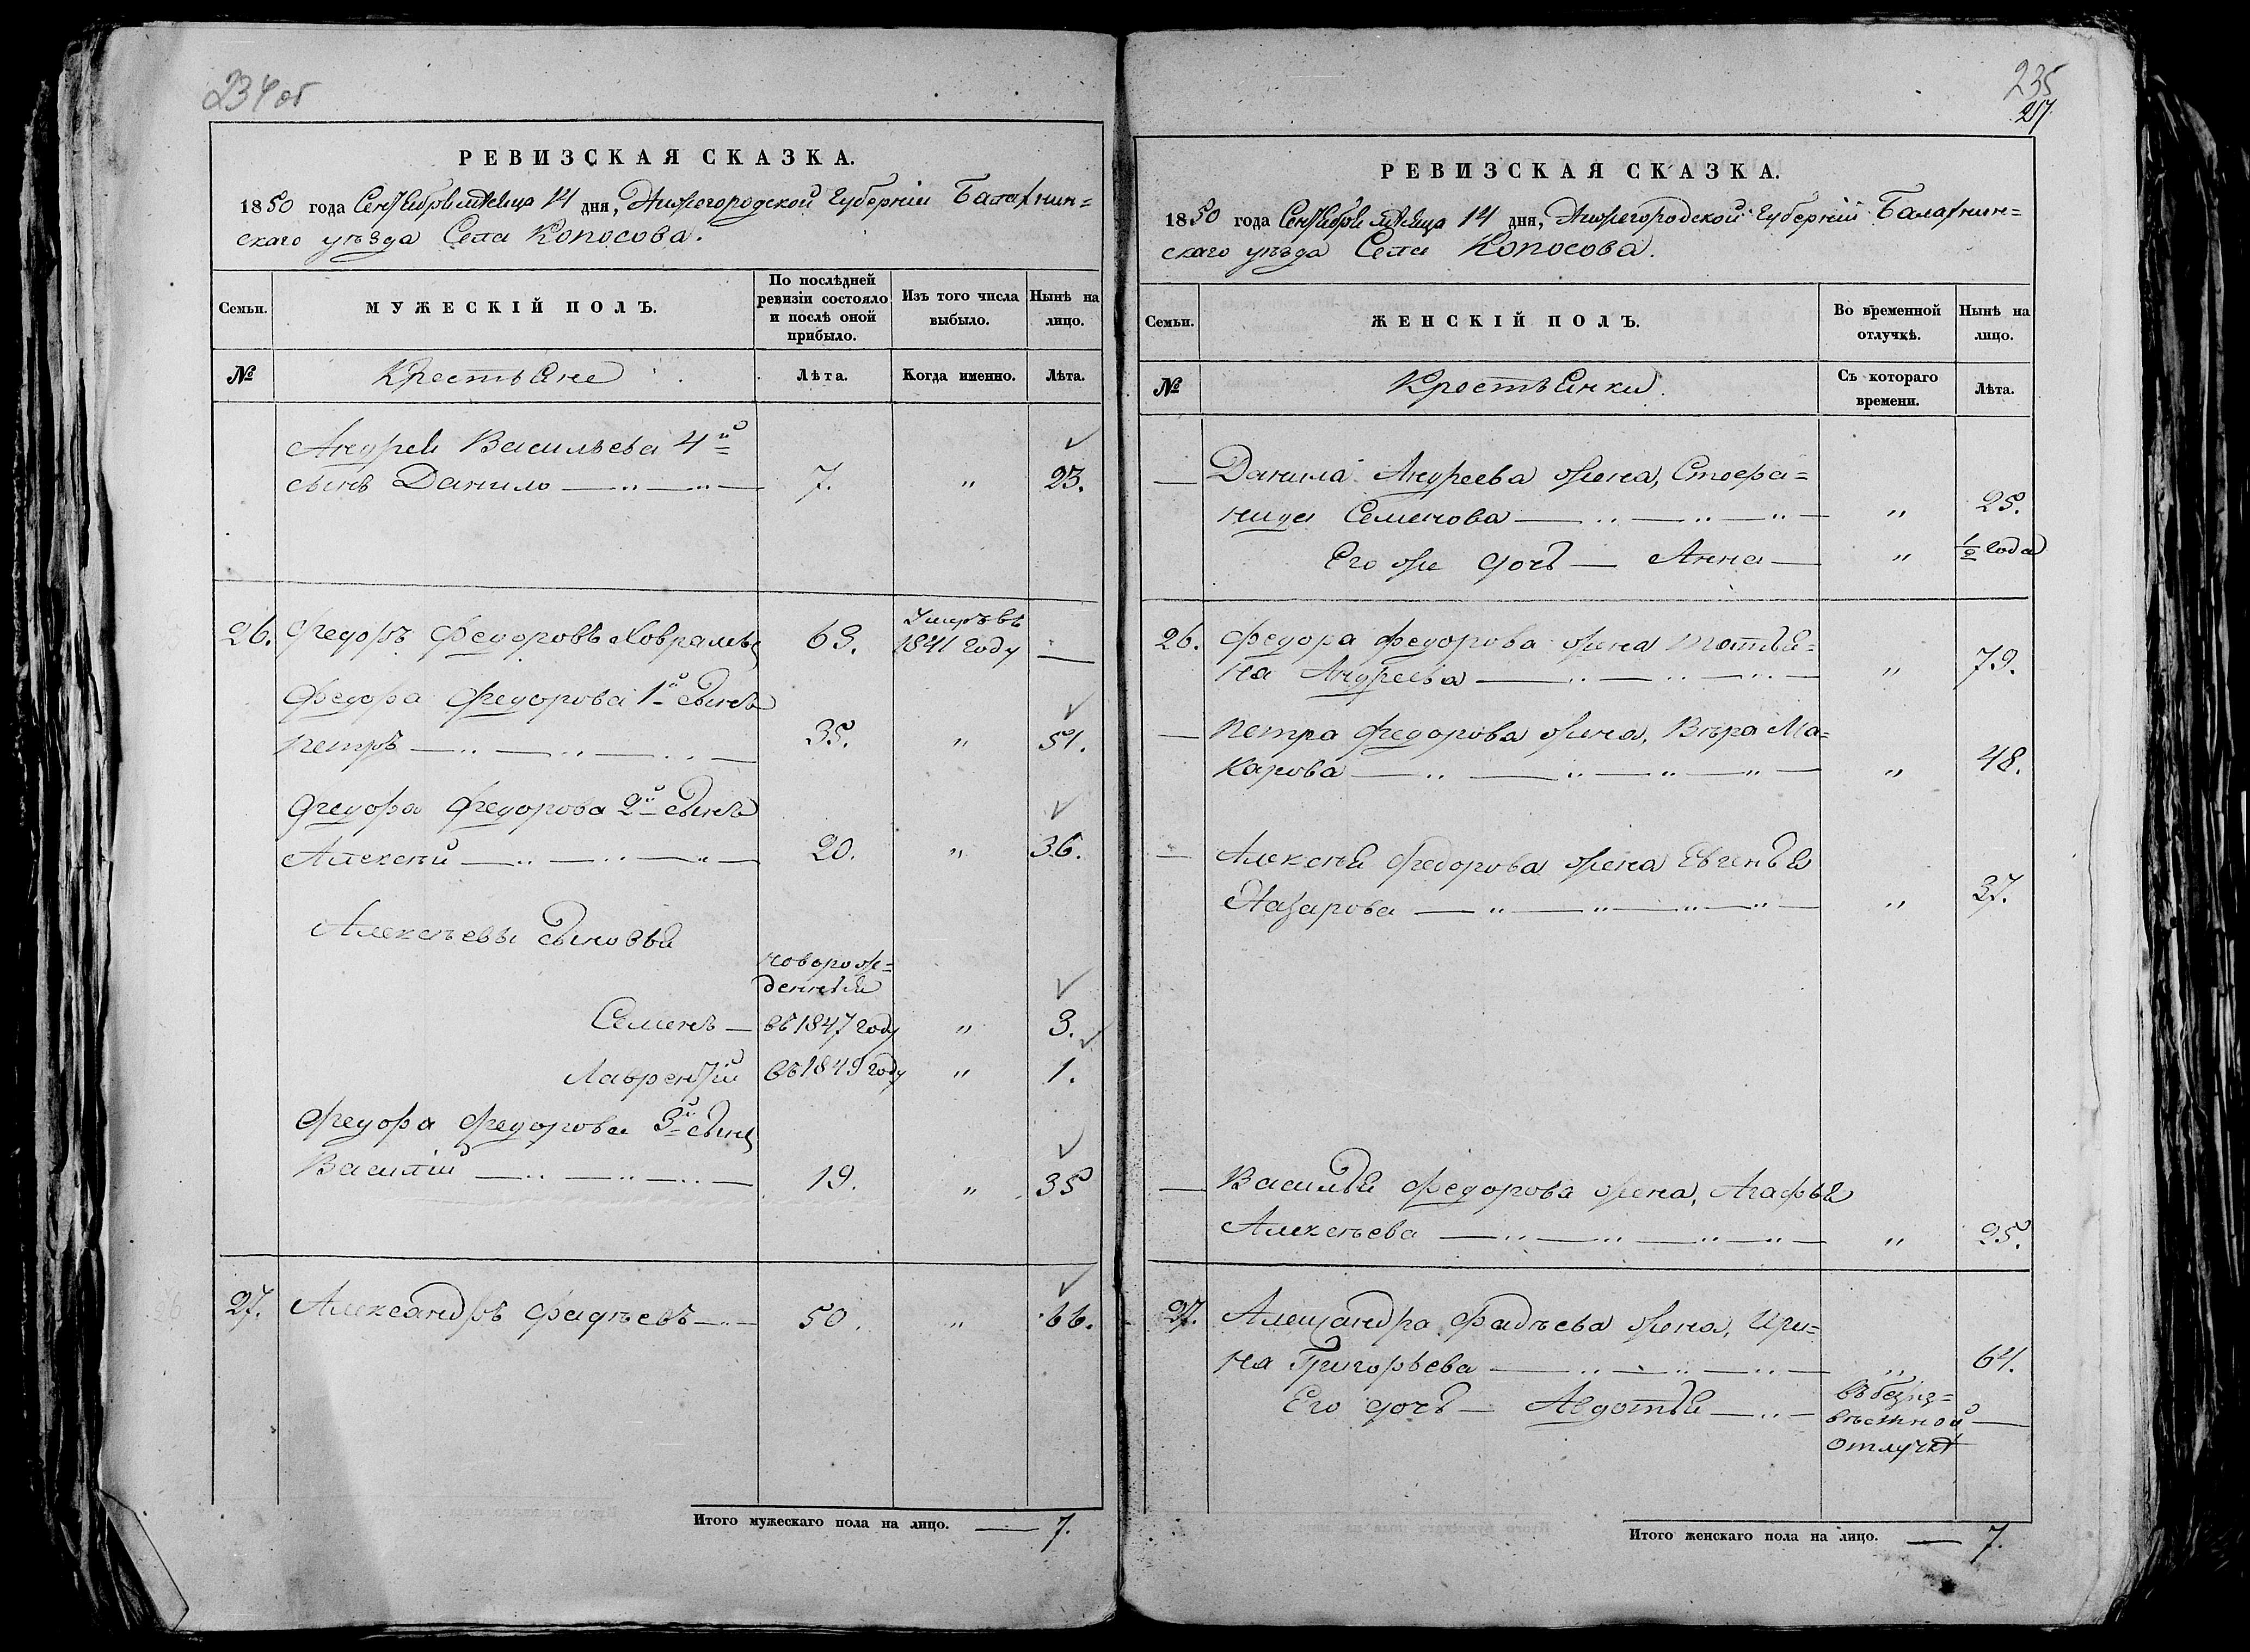 234 об
РЕВИЗСКАЯ СКАЗКА.
1850 года Сентября месяца 14 дня, Нижегородской Губерніи Балахнин=
скаго уѣзда Села Копосова.
Семьи.
МУЖЕСКІЙ ПОЛЪ.
По послѣдней ревизіи состояло и послѣ оной прибыло.
Изъ того числа выбыло.
Нынѣ на лицо.
№
Крестьяне
Лѣта.
Когда именно.
Лѣта.
Андрея Васильева 4й
сынъ Данило 7. " 23.
26. Федоръ Федоровъ Ховралевъ 63. Умръ въ
1841 году —
Федора Федорова 1й сынъ
Петръ 35. " 51.
Федора Федорова 2й сынъ
Алексѣй 20. " 36.
Алексѣевы сыновья
новорож=
денныя
Семенъ — въ 1847 году " 3.
Лаврентій въ 1849 году " 1.
Федора Федорова 3й сынъ
Василій 19. " 35
27. Александръ Фадѣевъ 50. " 66.
Итого мужескаго пола на лицо. — 7.
235
217
РЕВИЗСКАЯ СКАЗКА.
1850 года Сентября месяца 14 дня, Нижегородской Губерніи Балахнин=
скаго уѣзда Села Копосова.
Семьи.
ЖЕНСКІЙ ПОЛЪ.
Во временной отлучкѣ.
Нынѣ на лицо.
№
Крестьянки
Съ котораго времени.
Лѣта.
— Данила Андреева жена, Стефа=
нида Семенова " 25.
Его же дочь — Анна — " ½ года
26. Федора Федорова жена Татья=
на Андреева " 79.
— Петра Федорова жена, Вѣра Ма=
карова " 48.
— Алексѣя Федорова жена Евгенья
Назарова " 37.
— Василья Федорова жена, Агафья
Алексѣева " 25.
27. Александра Фадѣева жена, Ири=
на Григорьева " 64.
Его дочь — Авдотья въ безиз=
вѣстной —
отлучкѣ
Итого женскаго пола на лицо. — 7.